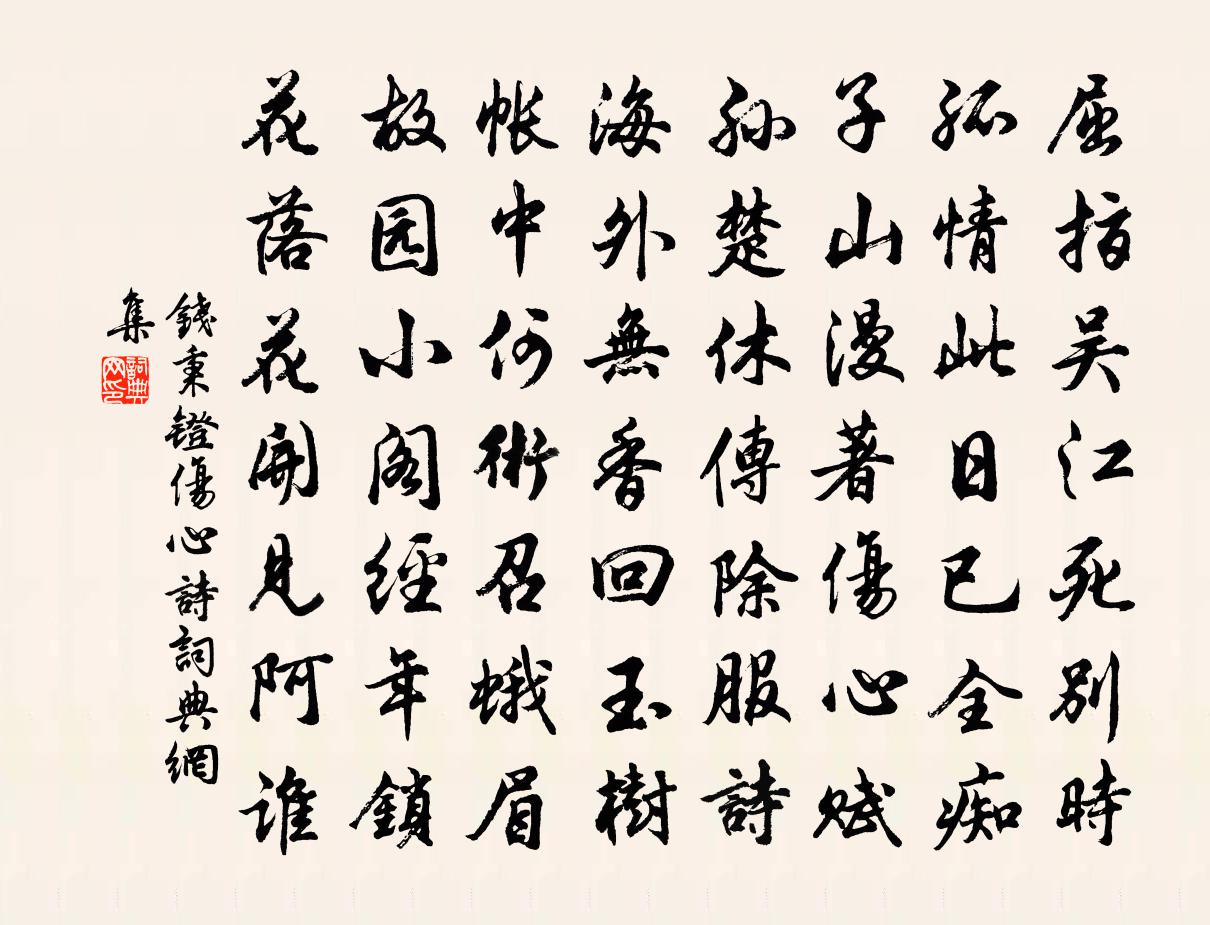 屈指吴江死别時
孤情此日已全痴
子山漫著傷心赋
孙楚休傳除服詩
海外無香回玉樹
帐中何術召蛾眉
故园小阁經年鎖
花落花開見阿谁
錢秉鐙傷心詩詞典網
集
詞典网印